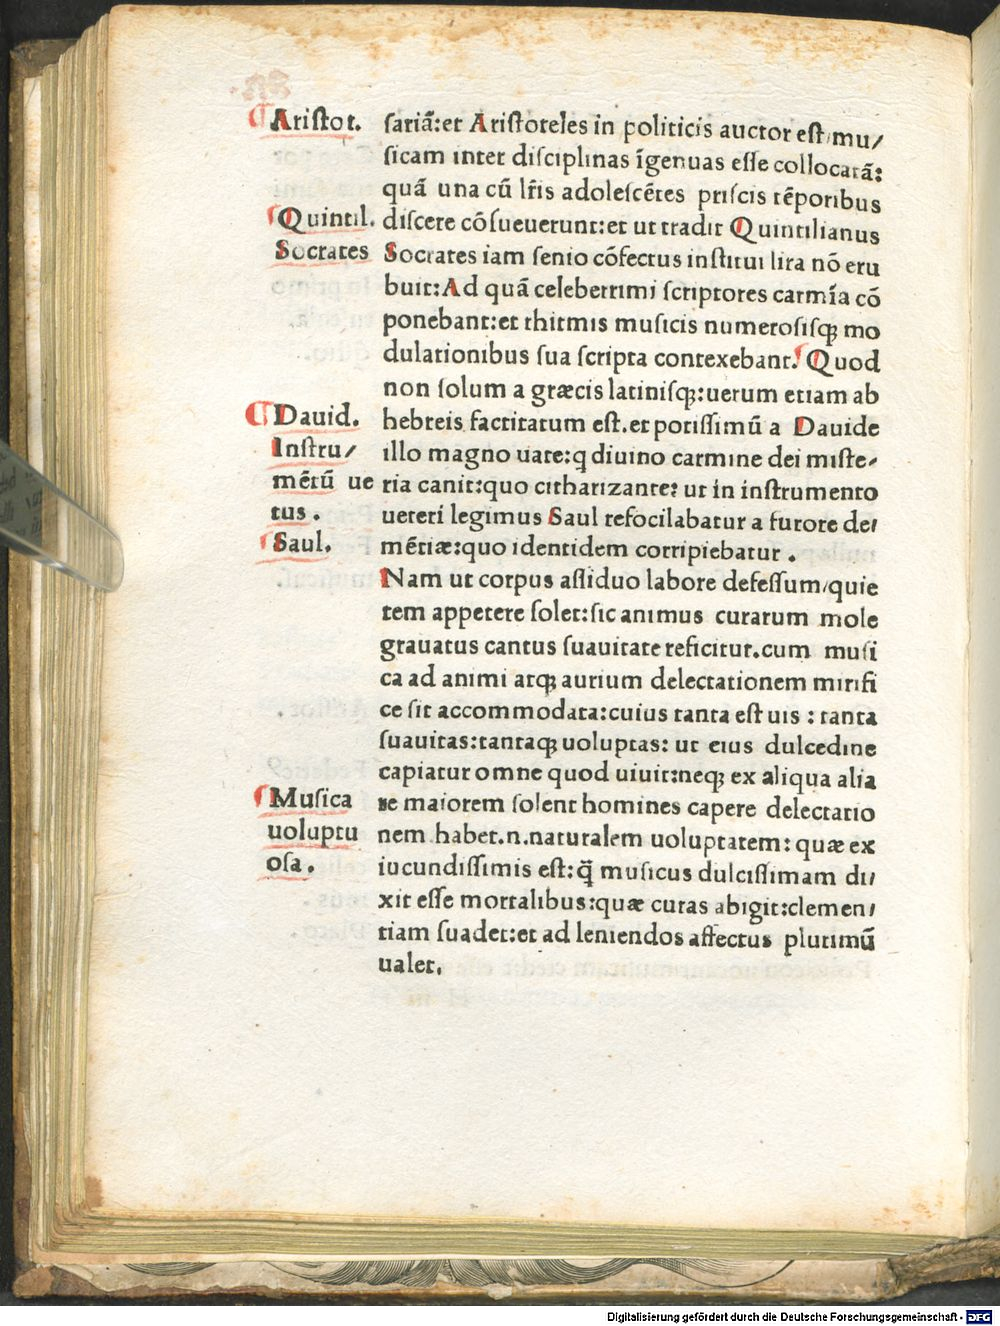 Aristot.
sariā:et Aristoteles in politicis auctor est,mu/
sicam inter disciplinas īgenuas esse collocatā:
quā una cū lr̄is adolescētes priscis tēporibus
Quintil.
discere cōsueuerunt:et ut tradit Quintilianus
Socrates
Socrates iam senio cōfectus institui lira nō eru
buit:Ad quā celeberrimi scriptores carmīa cō
ponebant:et rhitmis musicis numerosisqꝫ mo
dulationibus sua scripta contexebant. Quod
non solum a græcis latinisqꝫ:uerum etiam ab
Dauid.
hebreis factitatum est.et potissimū a Dauide
Instru/
illo magno uate:q diuino carmine dei miste/
mētū ue
ria canit:quo citharizante: ut in instrumento
tus.
ueteri legimus Saul refocilabatur a furore de/
Saul.
mētiæ:quo identidem corripiebatur.
Nam ut corpus assiduo labore defessum/quie
tem appetere solet:sic animus curarum mole
grauatus cantus suauitate reficitur.cum musi
ca ad animi atqꝫ aurium delectationem mirifi
ce sit accommodata:cuius tanta est uis : tanta
suauitas:tantaqꝫ uoluptas: ut eius dulcedine
capiatur omne quod uiuit:neqꝫ ex aliqua alia
Musica
re maiorem solent homines capere delectatio
uoluptu
nem.habet.n.naturalem uoluptatem: quæ ex
osa.
iucundissimis est:q̄ musicus dulcissimam di/
xit esse mortalibus:quæ curas abigit:clemen/
tiam suadet:et ad leniendos affectus plurimū
ualet.
Digitalisierung gefördert durch die Deutsche Forschungsgemeinschaft - DFG